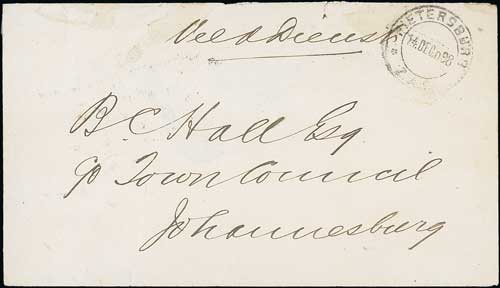 Veld Dienst
PIETERSBURG
14 DEC 98
Z.A.R.
B. C. Hall Esq
c/o Town Council
Johannesburg